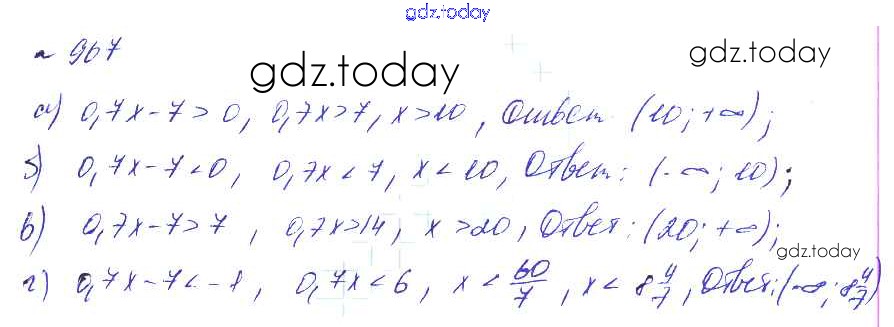 gdz.today
№ 967
gdz.today
gdz.today
а) 0,7x - 7 > 0, 0,7x > 7, x > 10, Ответ (10; +∞);
б) 0,7x - 7 < 0, 0,7x < 7, x < 10, Ответ: (-∞; 10);
в) 0,7x - 7 > 7, 0,7x > 14, x > 20, Ответ: (20; +∞);
gdz.today
г) 0,7x - 7 < -1, 0,7x < 6, x < 60/7, x < 8 4/7, Ответ: (-∞; 8 4/7)